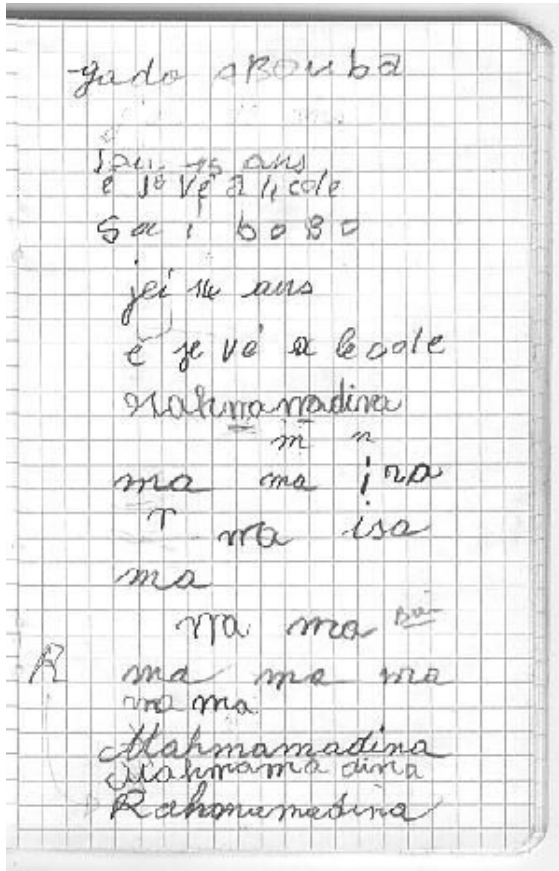 gado ABouba
ans
e je vé a lecole
Sa i boBo
jei 14 ans
e je vé a lecole
Mahmamadina
m n
ma ma ira
T ma isa
ma
ma ma
R ma ma ma
ma ma
Mahmamadina
Mahmamadina
Rahmamadina